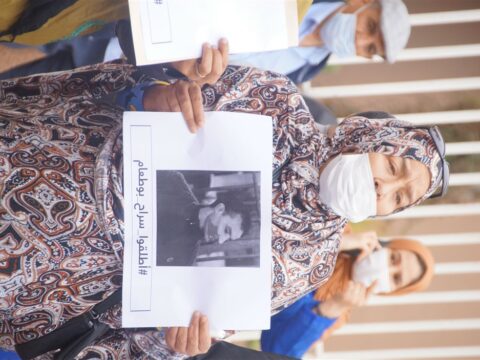 #أطلقوا سراح بوطعام